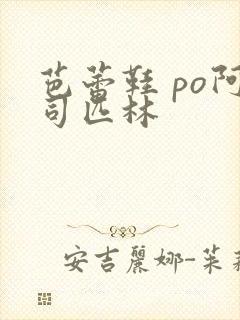 芭蕾鞋 po阿
司匹林
安吉麗娜-茱